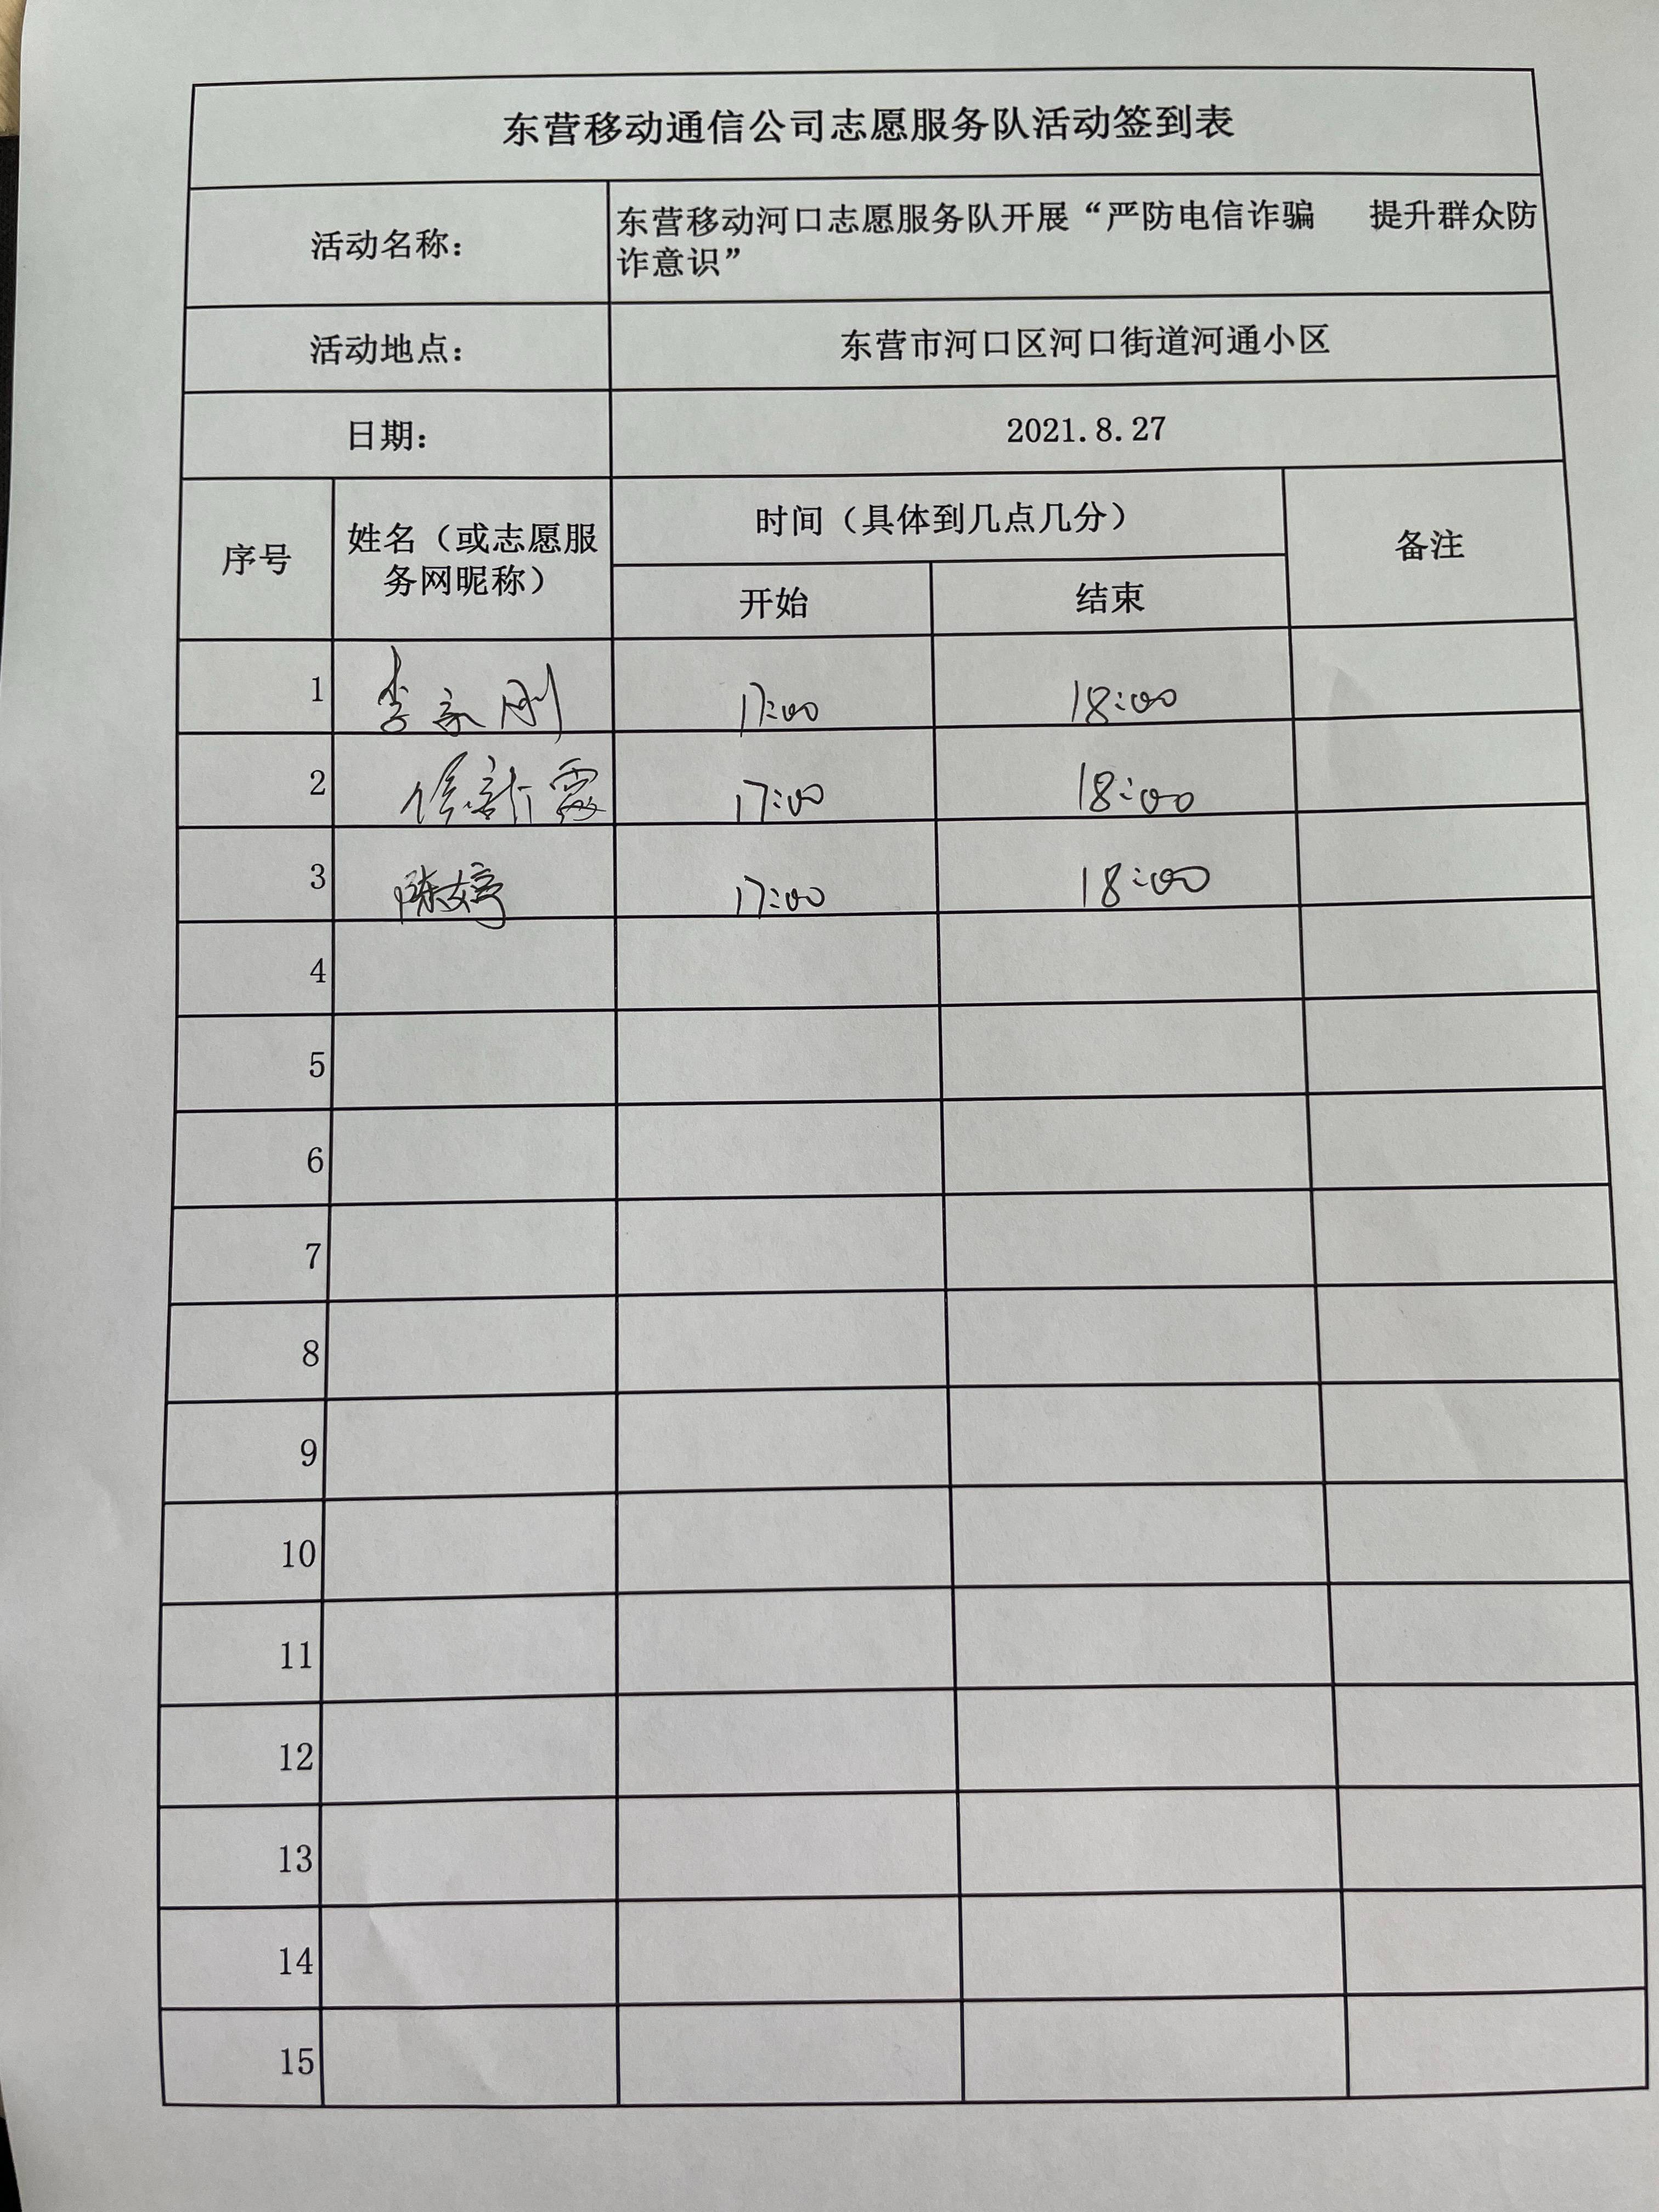 东营移动通信公司志愿服务队活动签到表
活动名称：
东营移动河口志愿服务队开展“严防电信诈骗 提升群众防
诈意识”
活动地点：
东营市河口区河口街道河通小区
日期：
2021.8.27
序号
姓名（或志愿服
务网昵称）
时间（具体到几点几分）
开始
结束
备注
1 李家刚 17:00 18:00
2 17:00 18:00
3 陈婷 17:00 18:00
4
5
6
7
8
9
10
11
12
13
14
15